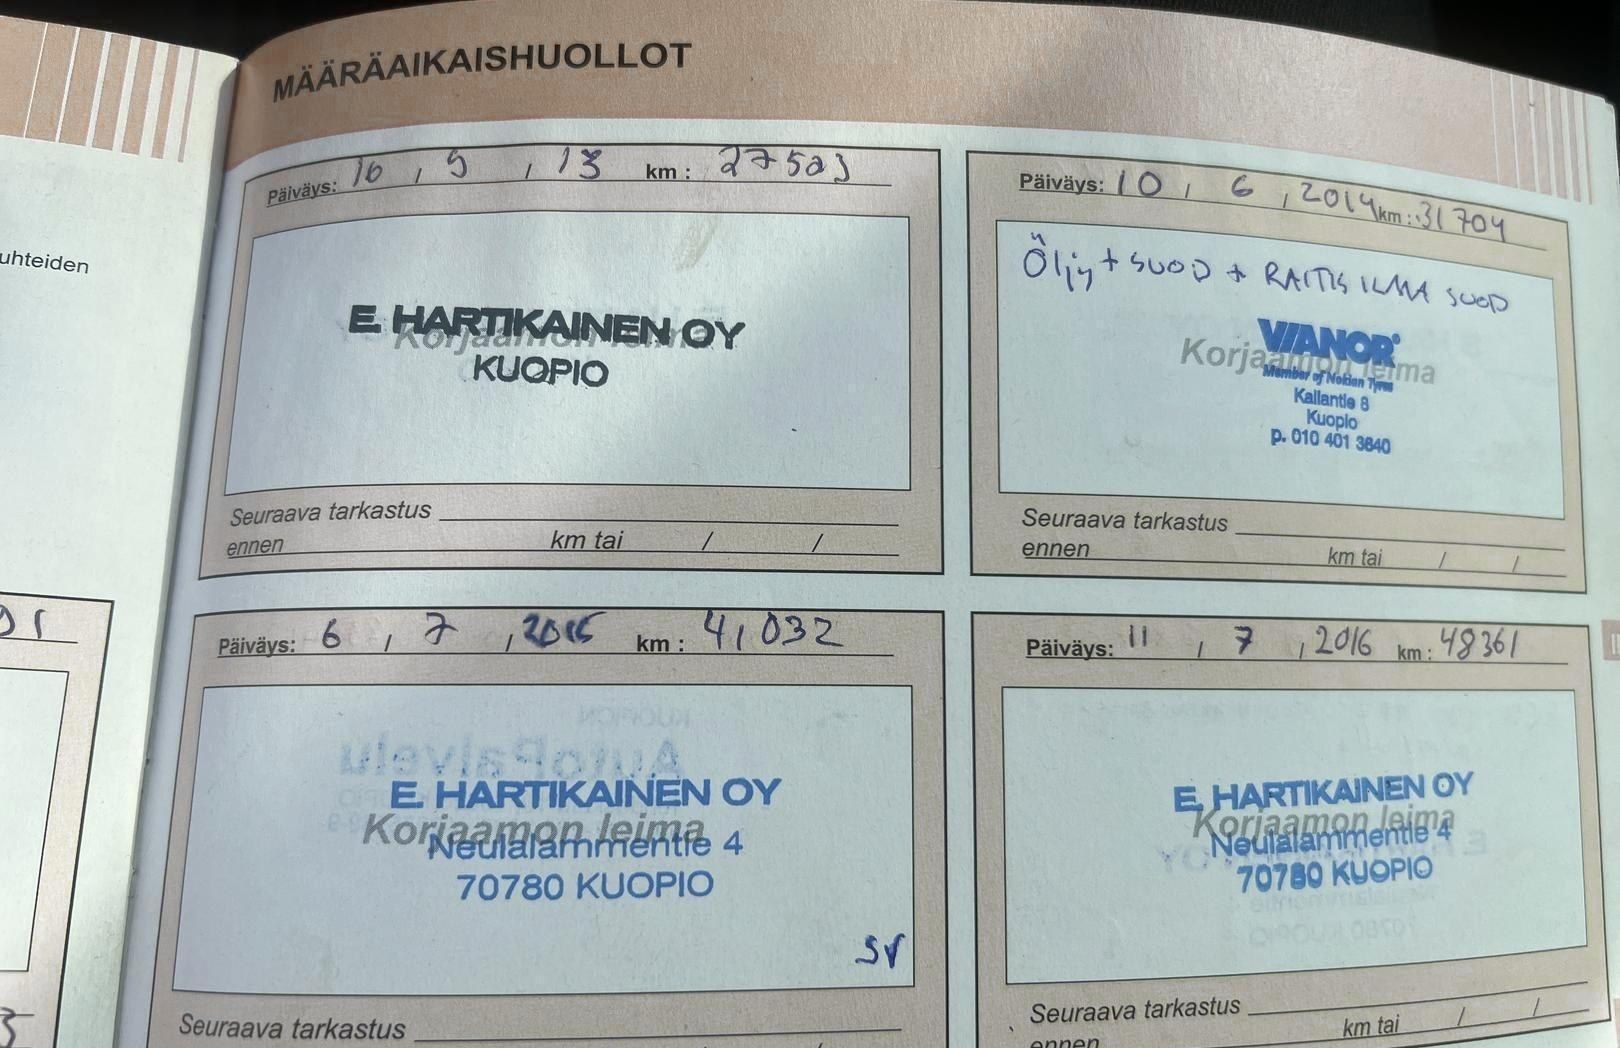 MÄÄRÄAIKAISHUOLLOT
uhteiden
Päiväys: 16 , 9 , 13 km :
E. HARTIKAINEN OY
Korjaamon leima
KUOPIO
Seuraava tarkastus
ennen km tai / /
Päiväys: 10 , 6 , 2014 km : 31704
Öljy + SUOD + RAITIS ILMA SUOD
VIANOR
Korjaamon leima
Member of Nokian Tyres
Kallantie 8
Kuopio
p. 010 401 3640
Seuraava tarkastus
ennen km tai / /
Päiväys: 6 , 7 , 2015 km : 41,032
E. HARTIKAINEN OY
Korjaamon leima
Neulalammentie 4
70780 KUOPIO
SV
Seuraava tarkastus
Päiväys: 11 , 7 , 2016 km : 48361
E. HARTIKAINEN OY
Korjaamon leima
Neulalammentie 4
70780 KUOPIO
Seuraava tarkastus
ennen km tai / /